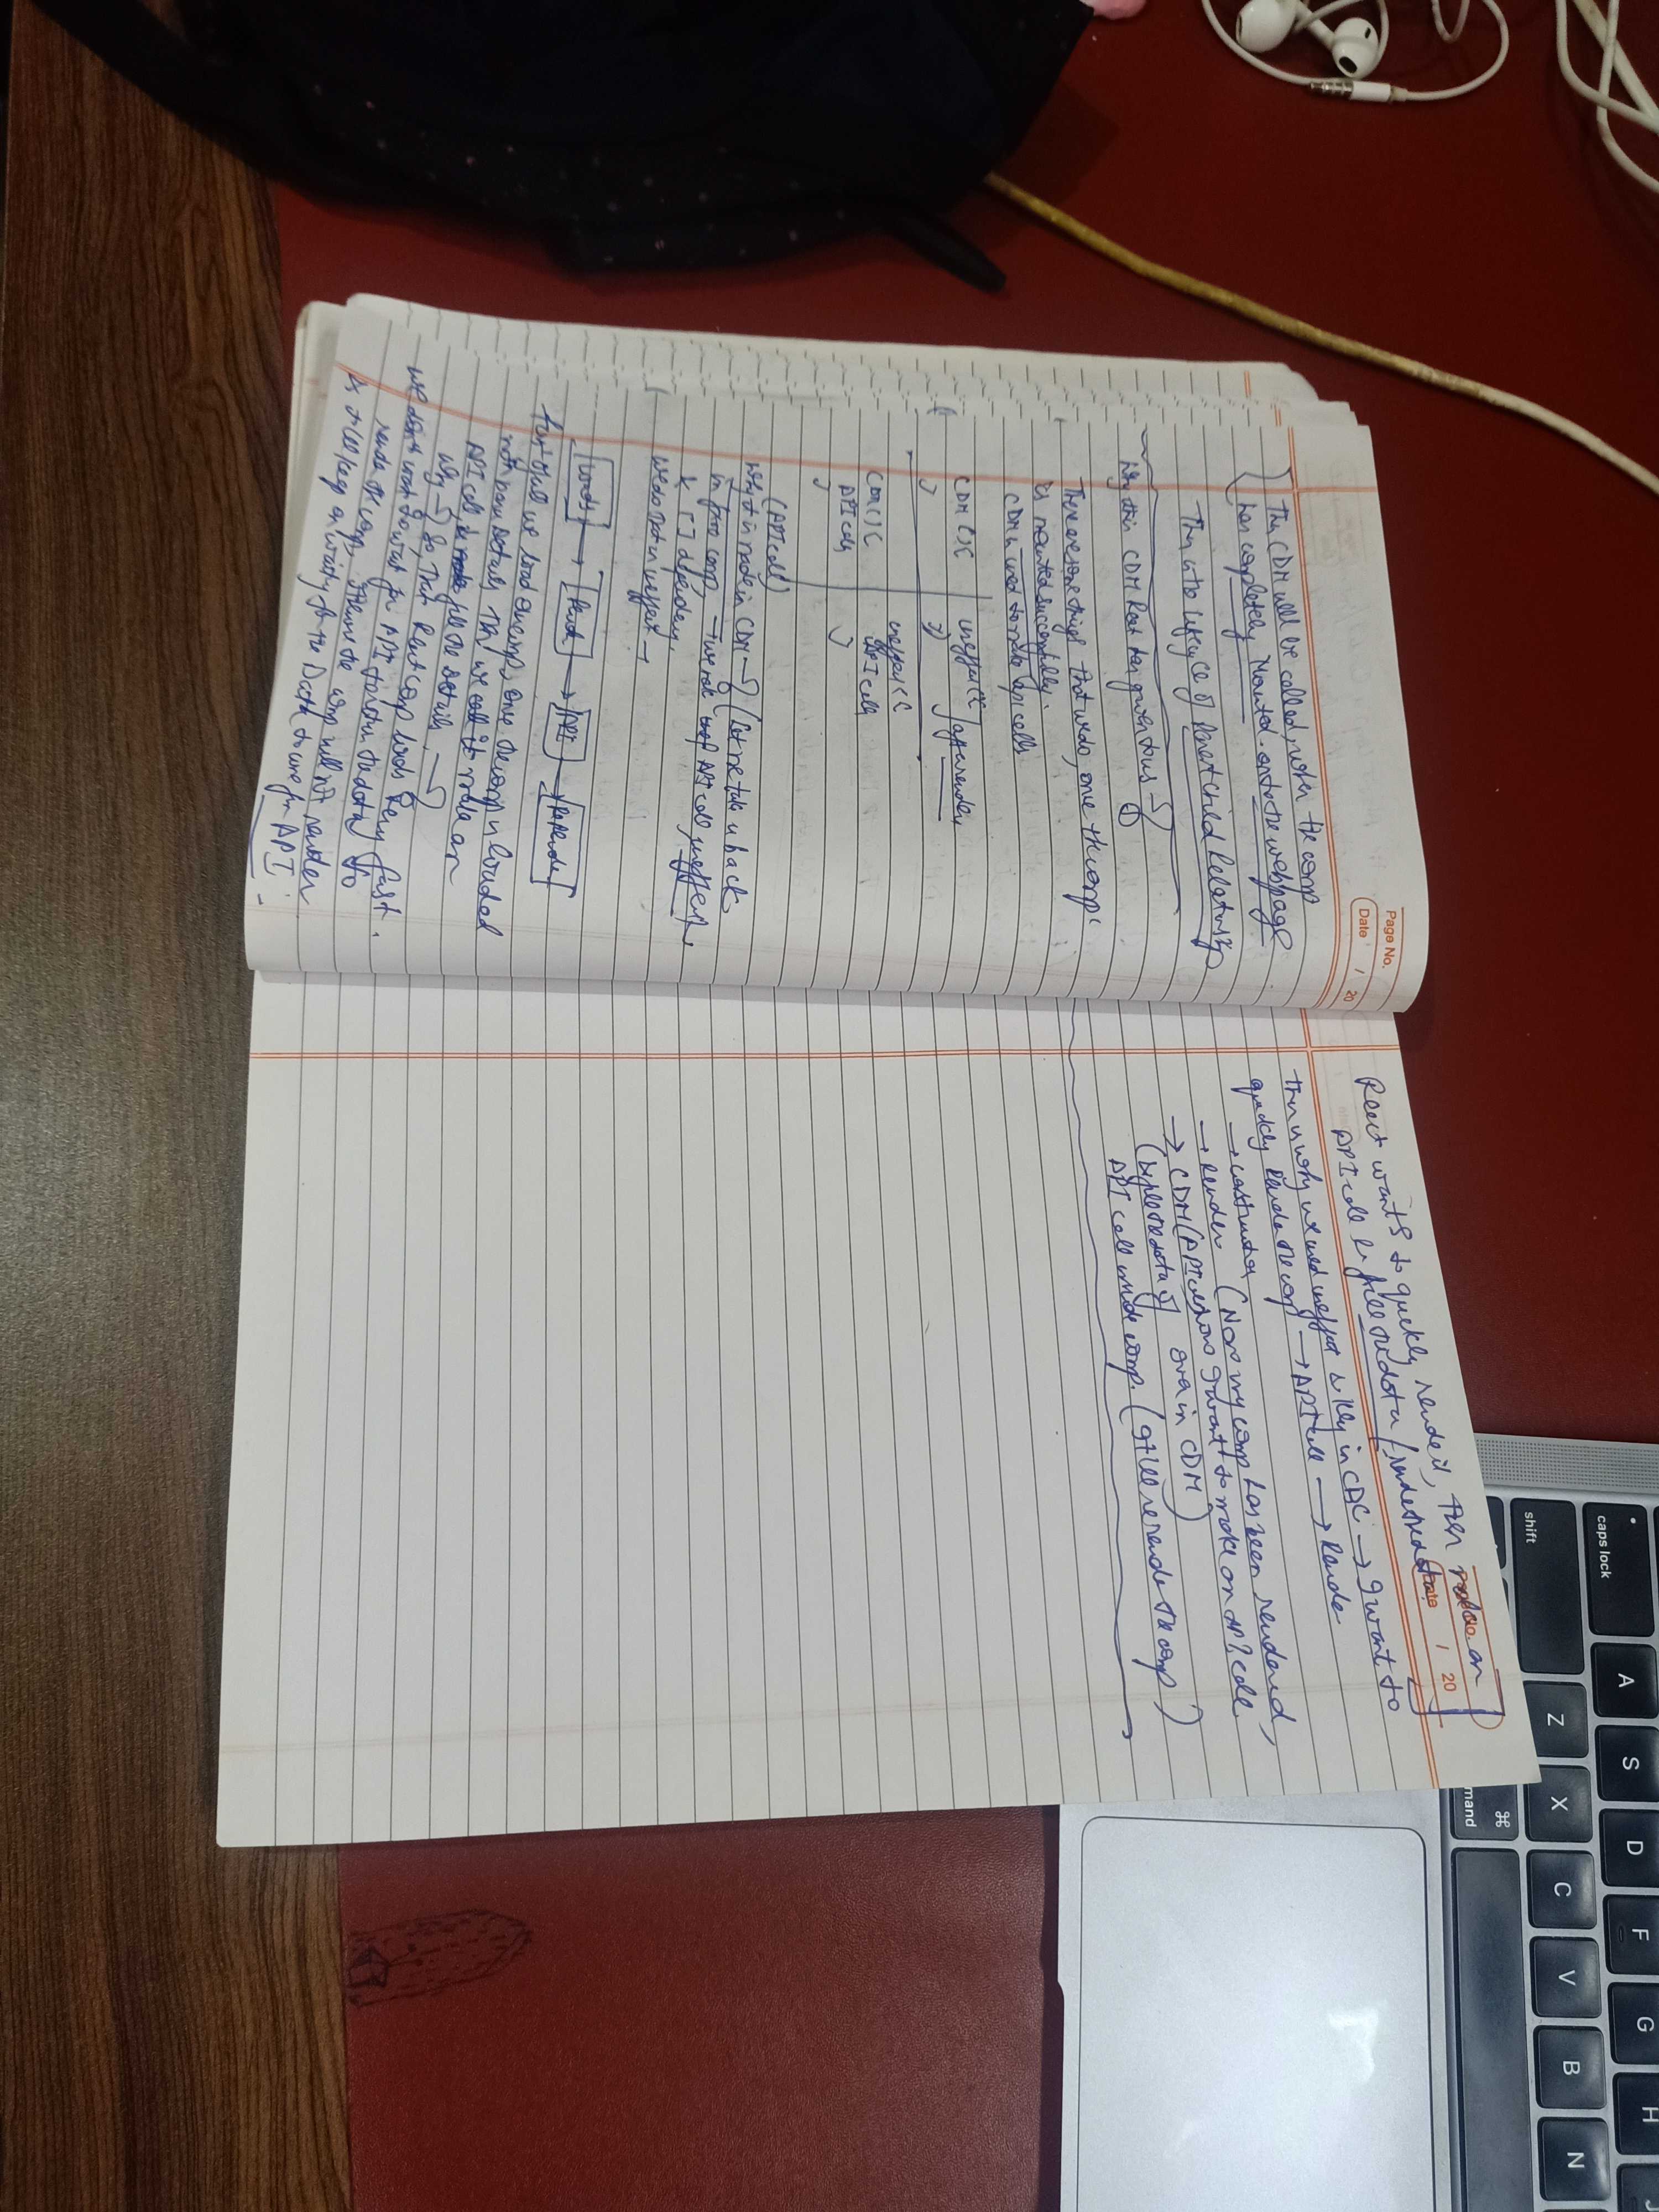 Page No.
Date / 20
This CDM will be called, when the comp
has completely Mounted onto the webpage
This is the lifecycle of Parent child Relationship
Why this CDM React has given to us → ①
There are some things that we do, once the comp
is mounted successfully.
CDM is used to make api calls
CDM () C useffect
after render
CDM () C useffect C
API calls API calls
(API call)
Why it is made in CDM → Let me take u back
in func comp → we make API call, useffect,
& [] dependency,
we do that in useffect →
loads → React → API → Rerender
not have details. Then we make an
API call & fill the details.
Why → So, that React comp loads very fast.
we don't want to wait for API to return the data to
render the comp, the comp will not render
it'll keep on waiting for the Data to come from API.
React wants to quickly render it, then make an
API call & fill the data / render the data
Date / 20
This is why we used useffect & Key in CBC → I want to
quickly Render the comp → API call → Render.
→ constructor (Now my comp has been rendered,
→ Render now I want to make an API call
→ CDM (API call) even in CDM)
API call inside comp. (It'll rerender the comp)
caps lock
shift
A
Z
S
X
D
C
F
V
G
B
H
N
J
⌘
mand